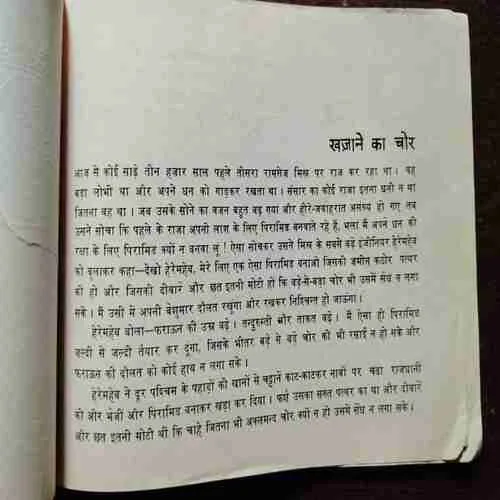 खज़ाने का चोर
आज से कोई साढ़े तीन हजार साल पहले तीसरा रामसेज मिस्र पर राज कर रहा था। वह
बड़ा लोभी था और अपने धन को गाड़कर रखता था। संसार का कोई राजा इतना धनी न था
जितना वह था। जब उसके सोने का वजन बहुत बढ़ गया और हीरे-जवाहरात असंख्य हो गए तब
उसने सोचा कि पहले के राजा अपनी लाश के लिए पिरामिड बनवाते रहे हैं, भला मैं अपने धन की
रक्षा के लिए पिरामिड क्यों न बनवा लूं! ऐसा सोचकर उसने मिस्र के सबसे बड़े इंजीनियर हेरेमहेब
को बुलाकर कहा—देखो हेरेमहेब, मेरे लिए एक ऐसा पिरामिड बनाओ जिसकी जमीन कठोर पत्थर
की हो और जिसकी दीवारें और छत इतनी मोटी हो कि बड़े-से-बड़ा चोर भी उसमें सेंध न लगा
सके। मैं उसी में अपनी बेशुमार दौलत रखूंगा और रखकर निश्चिन्त हो जाऊंगा।
हेरेमहेब बोला—फराऊन की उम्र बढ़े। तन्दुरुस्ती और ताकत बढ़े। मैं ऐसा ही पिरामिड
जल्दी से जल्दी तैयार कर दूंगा, जिसके भीतर बड़े से बड़े चोर की भी रसाई न हो सके और
फराऊन की दौलत को कोई हाथ न लगा सके।
हेरेमहेब ने दूर पश्चिम के पहाड़ों की खानों से चट्टानें काट-काटकर नावों पर चढ़ा राजधानी
की ओर भेजीं और पिरामिड बनाकर खड़ा कर दिया। फर्श उसका सख्त पत्थर का था और दीवारें
और छत इतनी मोटी थीं कि चाहे जितना भी अक्लमन्द चोर क्यों न हो उसमें सेंध न लगा सके।